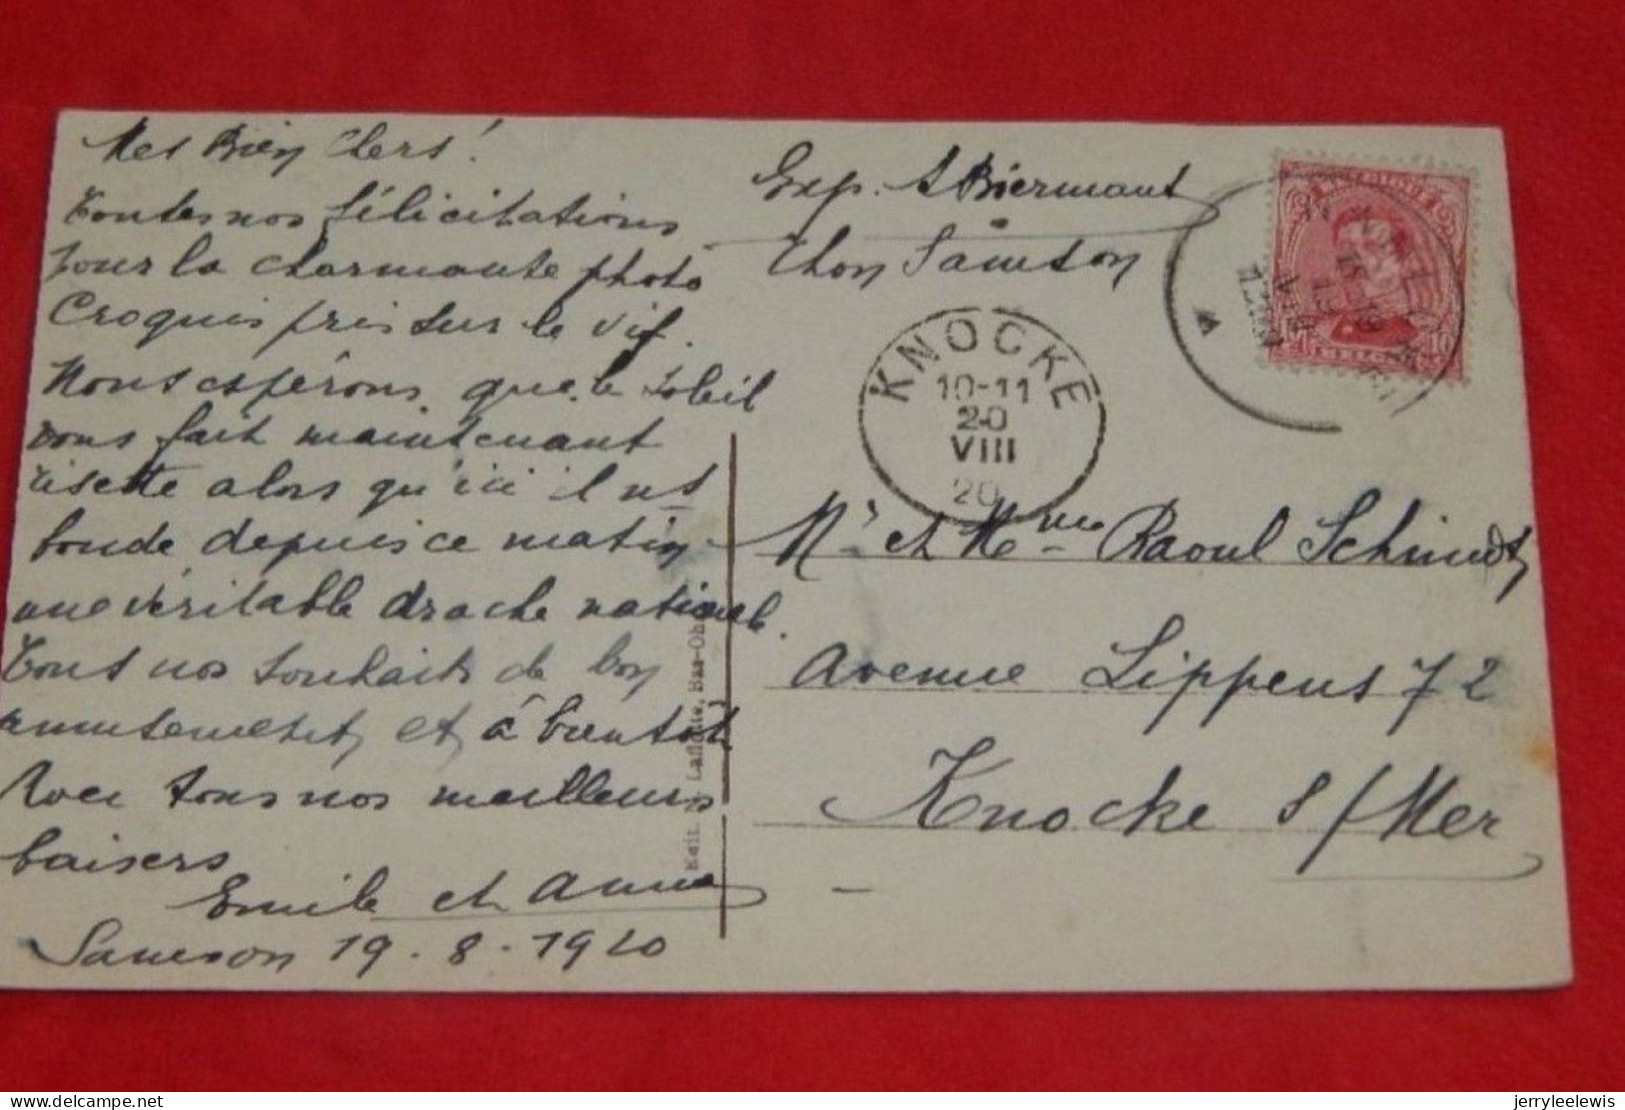 Mes Bien Chers!
Toutes nos félicitations
pour la charmante photo
Croquis pris sur le vif.
Nous espérons que le soleil
vous fait maintenant
risette alors qu'ici il ns
boude depuis ce matin
une véritable drache nationale.
Tous nos souhaits de bon
amusement et à bientôt
Avec tous nos meilleurs
baisers
Emile et Anna
Samson 19-8-1920
Exp. A Biermant
Thon Samson
KNOCKE
10-11
20
VIII
20
Mr et Mme Raoul Schmidt
Avenue Lippens 72
Knocke s/Mer
Edit. N. Laflotte, Bas-Oha
BELGIQUE
10
jerryleelewis
delcampe.net